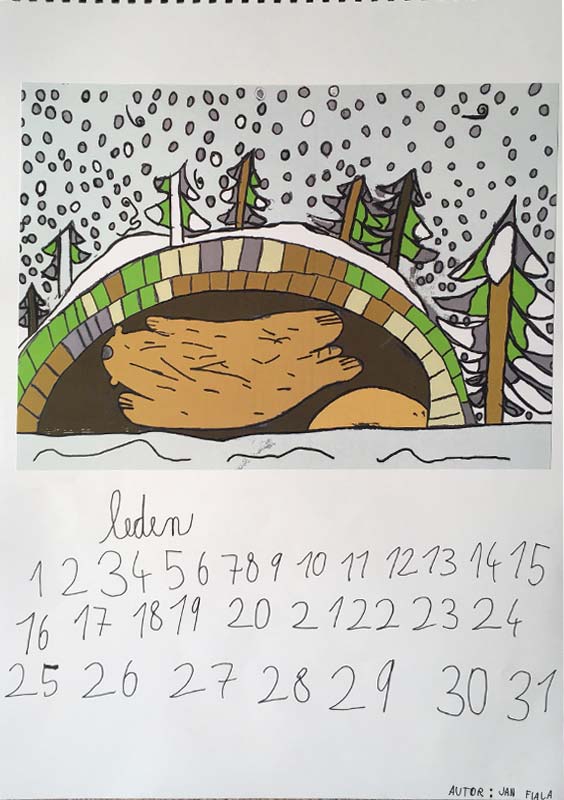 leden
1 2 3 4 5 6 7 8 9 10 11 12 13 14 15
16 17 18 19 20 21 22 23 24
25 26 27 28 29 30 31
AUTOR: JAN FIALA